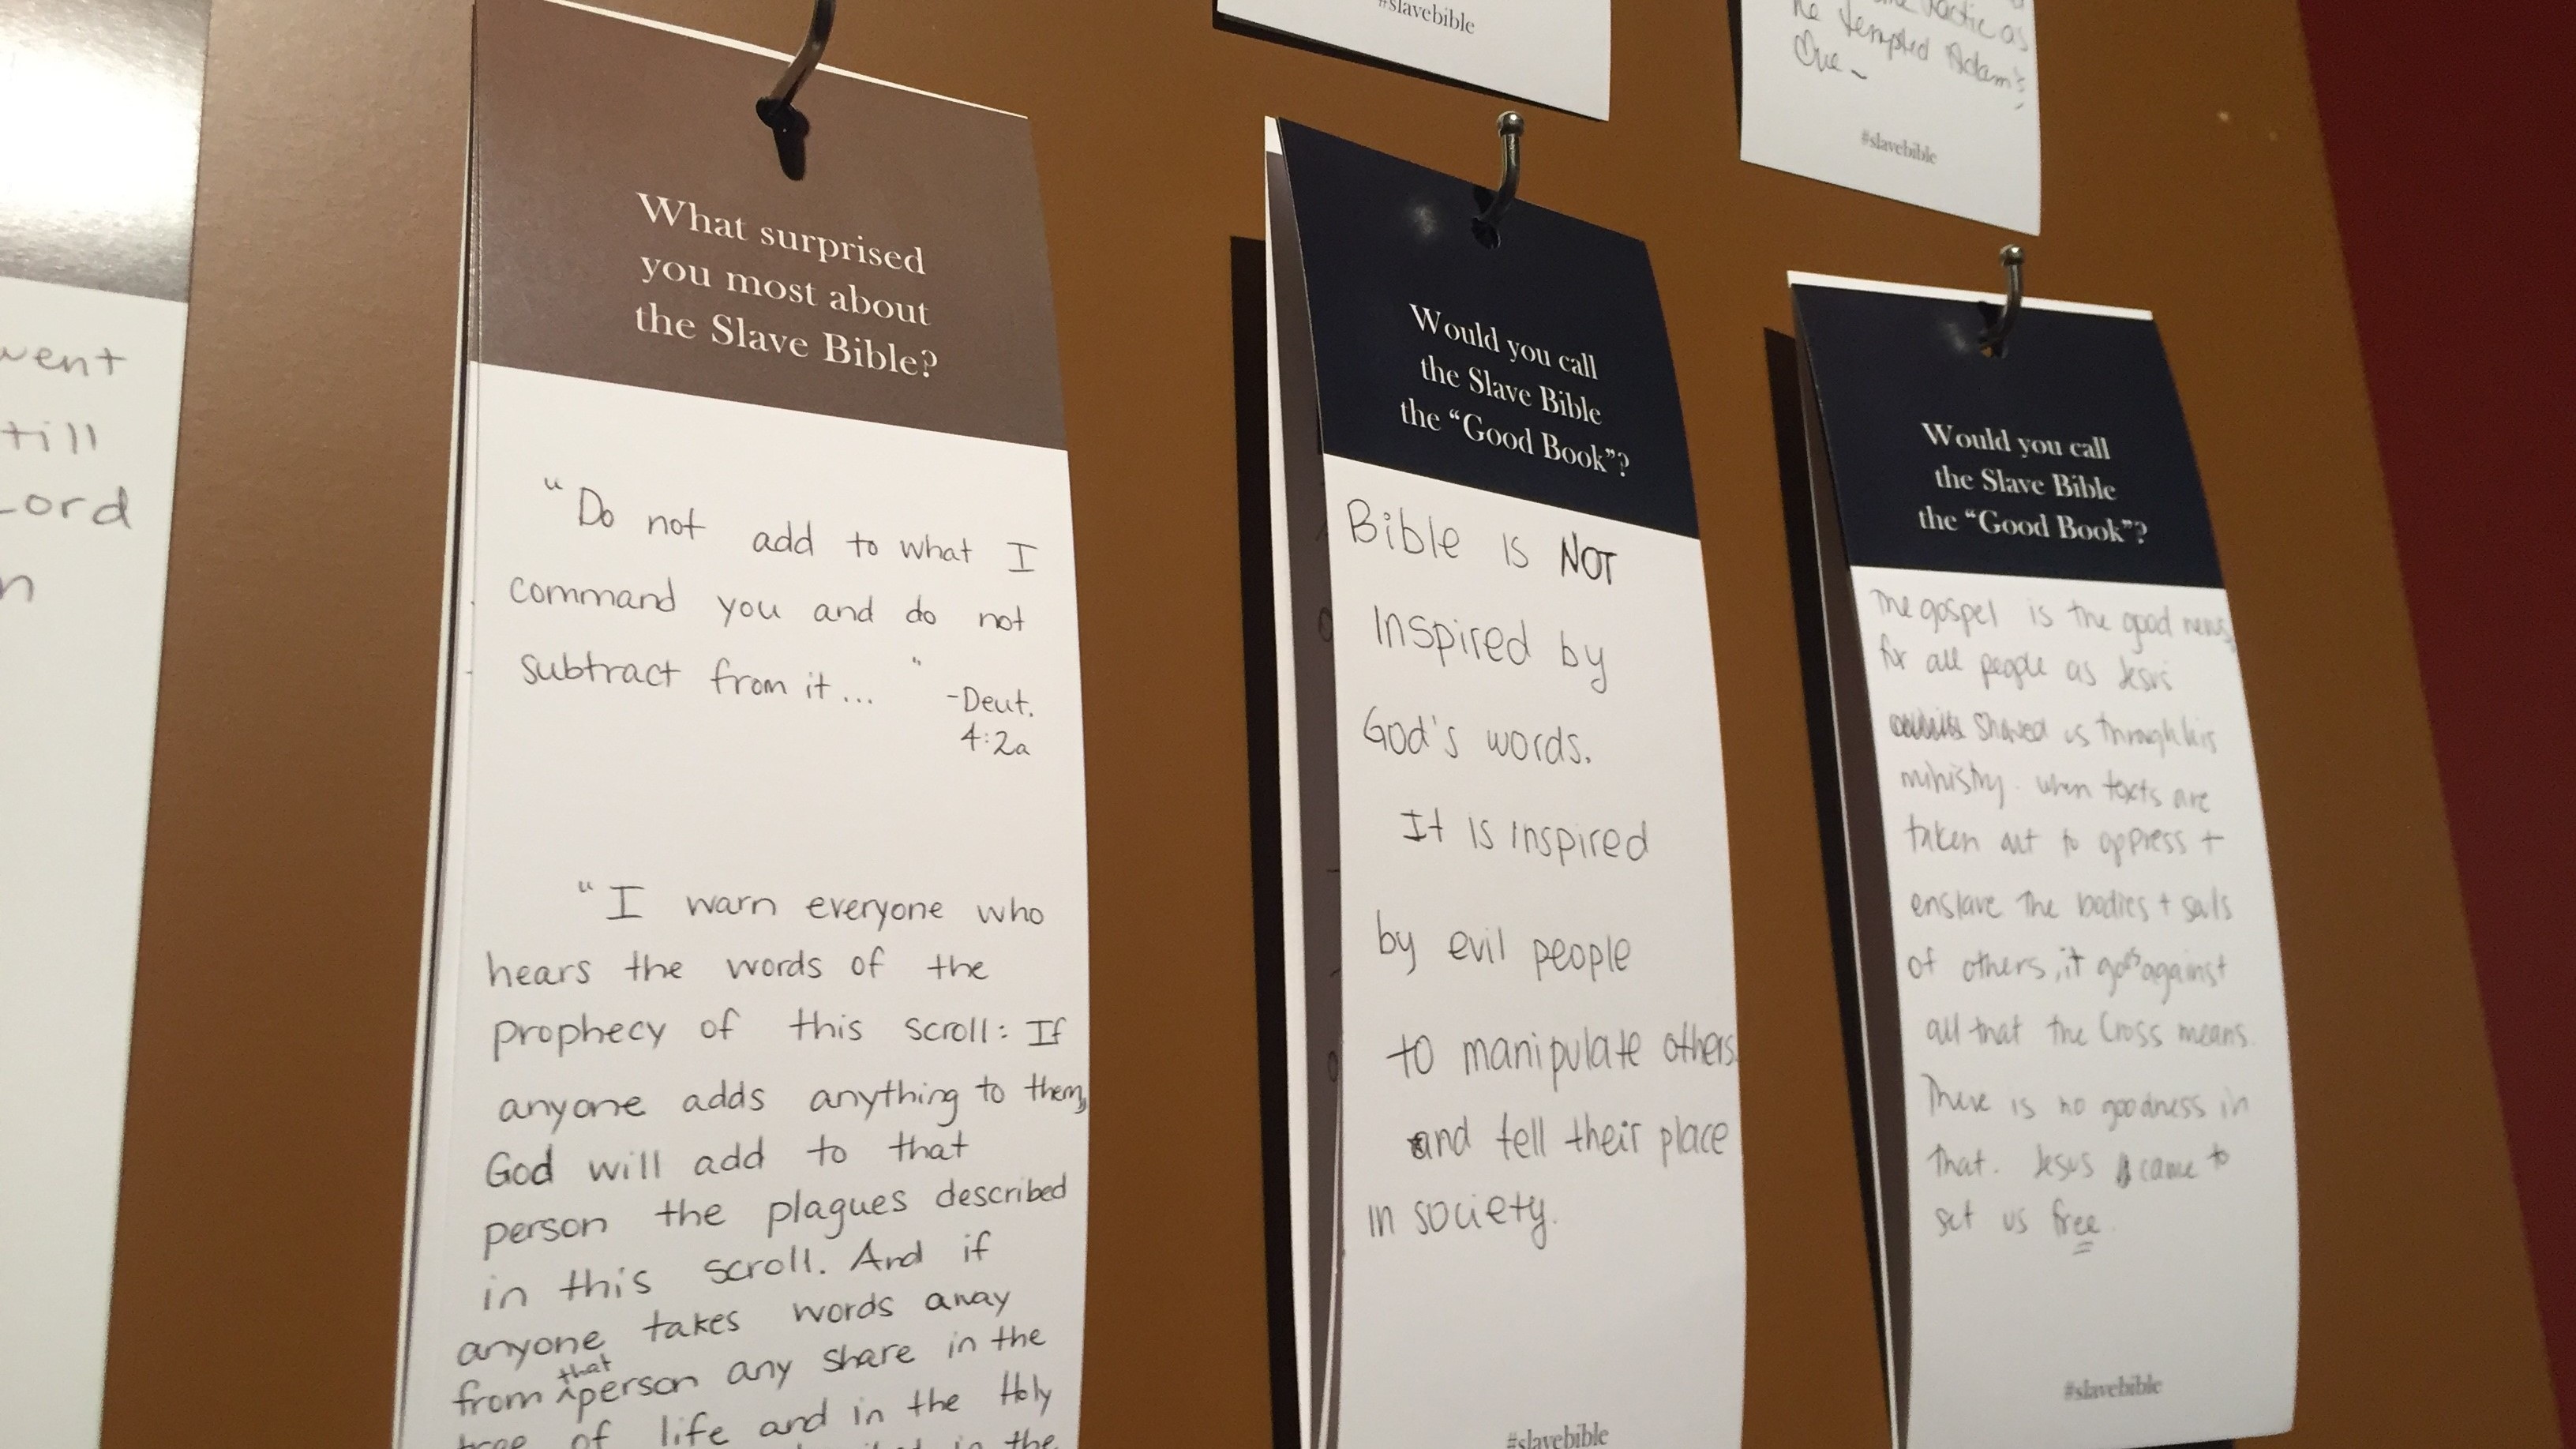 went
till
Lord
n
What surprised
you most about
the Slave Bible?
"Do not add to what I
command you and do not
subtract from it... "
-Deut.
4:2a
"I warn everyone who
hears the words of the
prophecy of this scroll: If
anyone adds anything to them,
God will add to that
person the plagues described
in this scroll. And if
anyone takes words away
from ^that person any share in the
tree of life and in the Holy
in the
#slavebible
Would you call
the Slave Bible
the “Good Book”?
Bible is NOT
Inspired by
God's words.
It is inspired
by evil people
to manipulate others
and tell their place
in society.
#slavebible
tactic as
he tempted Adam &
#slavebible
Would you call
the Slave Bible
the “Good Book”?
The gospel is the good news
for all people as Jesus
showed us through his
ministry. When texts are
taken out to oppress +
enslave the bodies + souls
of others, it goes against
all that the Cross means.
There is no goodness in
that. Jesus came to
set us free.
#slavebible